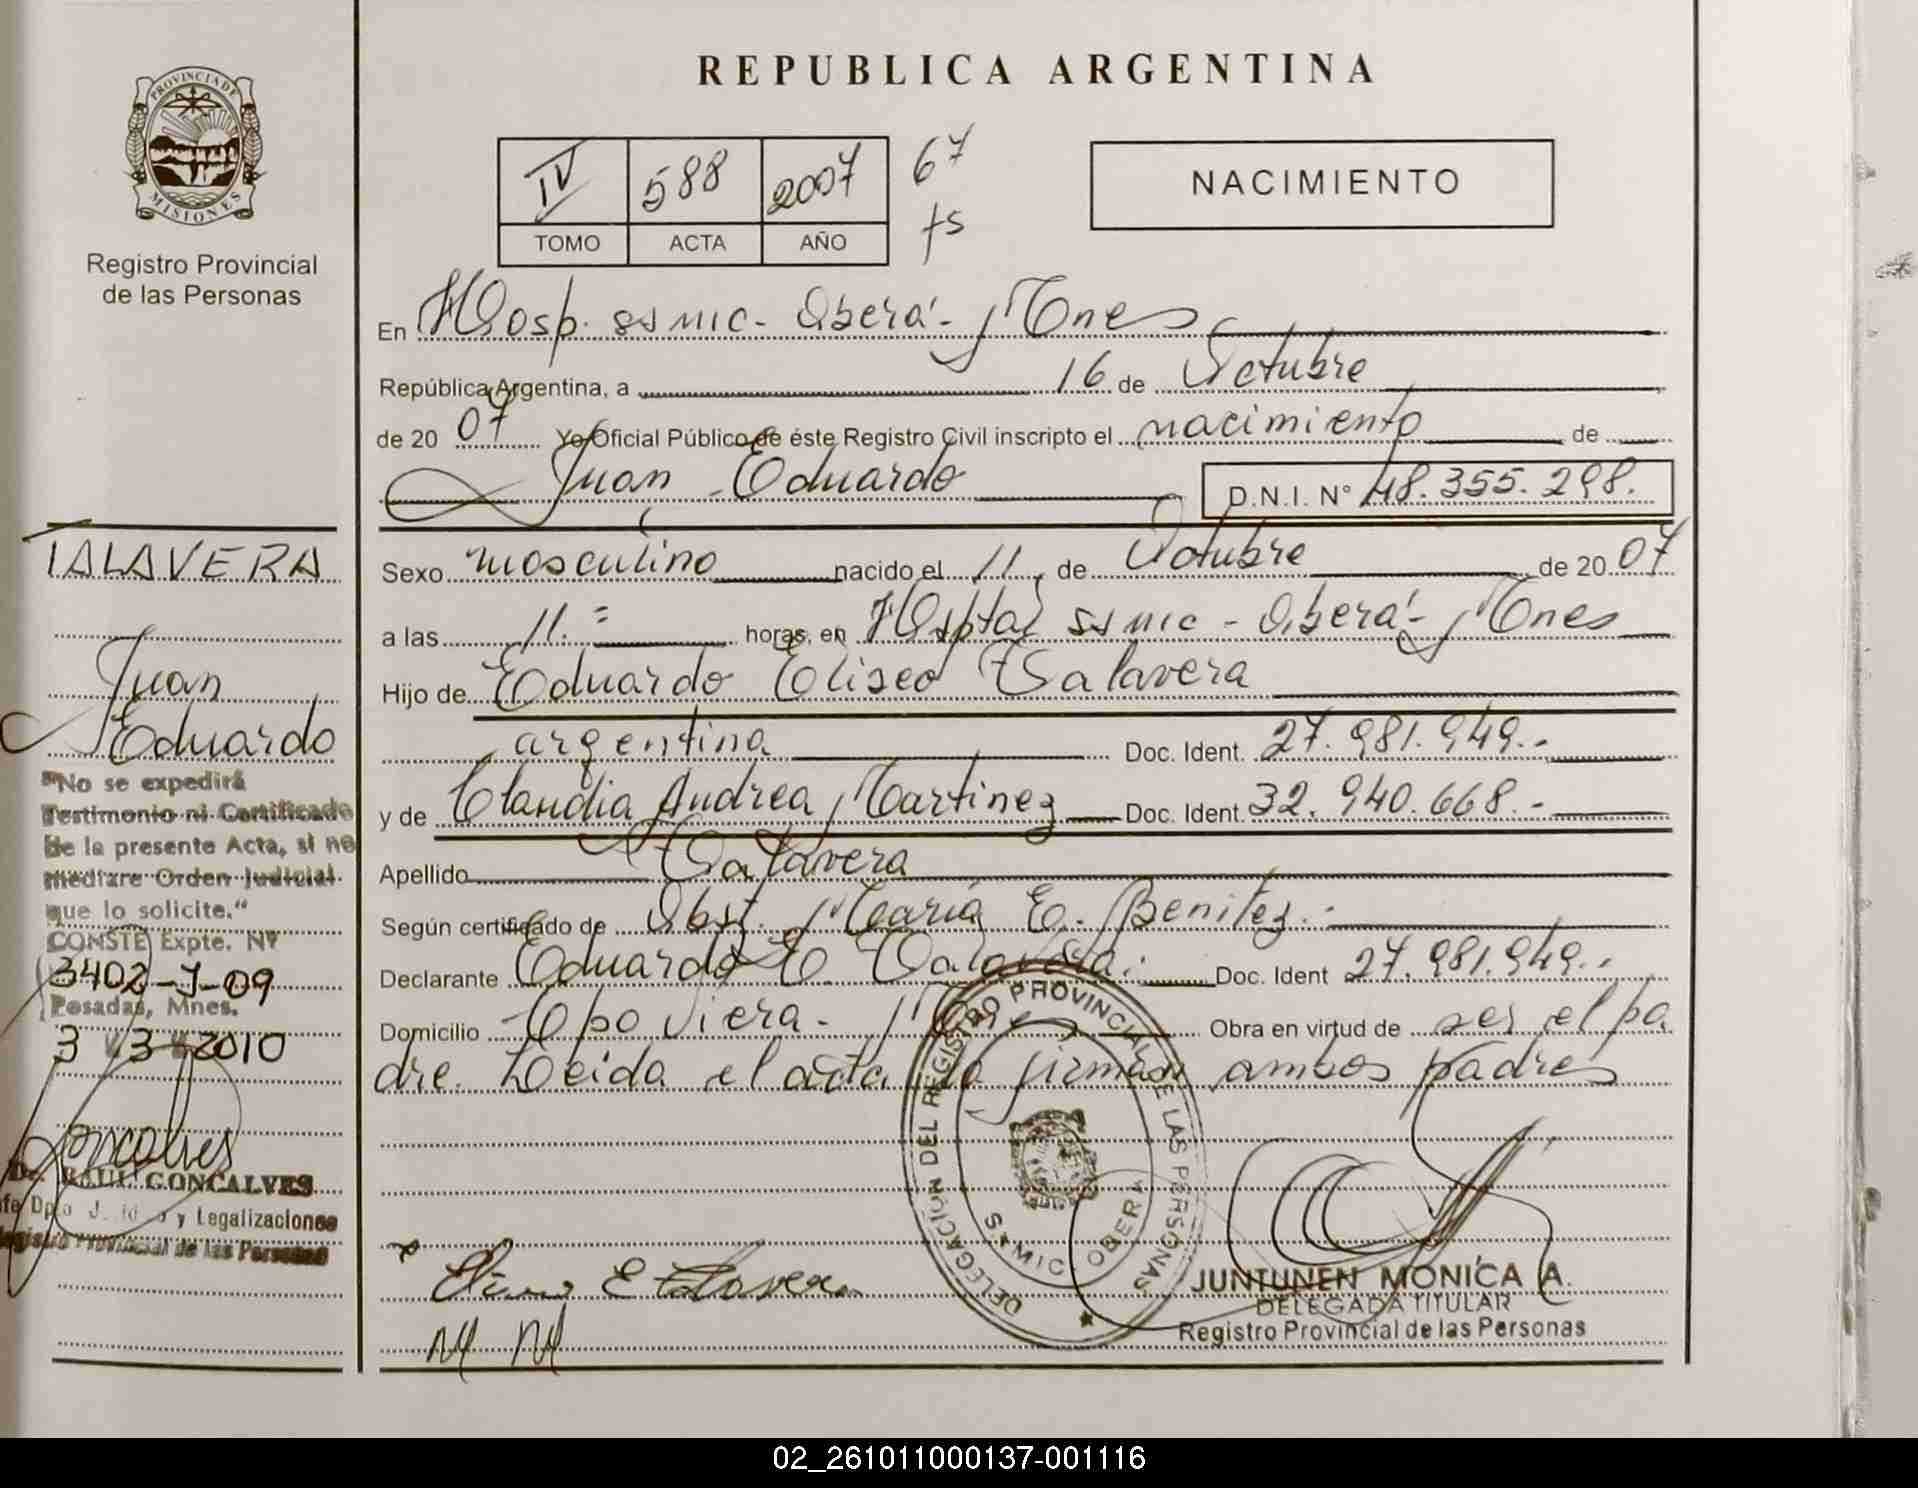 PROVINCIA DE
MISIONES
Registro Provincial
de las Personas
REPUBLICA ARGENTINA
IV 588 2007 67
TOMO ACTA AÑO fs
NACIMIENTO
En Hosp. ssmic- Oberá- Mnes
República Argentina, a 16 de Octubre
de 2007 Yo Oficial Público de éste Registro Civil inscripto el nacimiento de
Juan Eduardo D.N.I. N° 48.355.298.
Sexo masculino nacido el 11 de Octubre de 2007
a las 11.= horas, en Hospital ssmic - Oberá- Mnes
Hijo de Eduardo Eliseo Talavera
argentina Doc. Ident. 27.981.949.-
y de Claudia Andrea Martinez Doc. Ident. 32.940.668.-
Apellido Talavera
Según certificado de Obst. Maria E. Benitez.-
Declarante Eduardo E. Talavera.- Doc. Ident 27.981.949..
Domicilio Cpo Viera- Mnes Obra en virtud de ser el pa
dre. Leida el acta la firman ambos padres
TALAVERA
Juan
Eduardo
"No se expedirá
Testimonio ni Certificado
de la presente Acta, si no
mediare Orden Judicial
que lo solicite."
CONSTE Expte. Nº
3402-J-09
Posadas, Mnes.
3 3 2010
Goncalves
Dr. RAUL GONCALVES
Jefe Dpto y Legalizaciones
Registro Provincial de las Personas
DELEGACIÓN DEL REGISTRO PROVINCIAL DE LAS PERSONAS
SSMIC OBERA
JUNTUNEN MONICA A.
DELEGADA TITULAR
Registro Provincial de las Personas
02_261011000137-001116